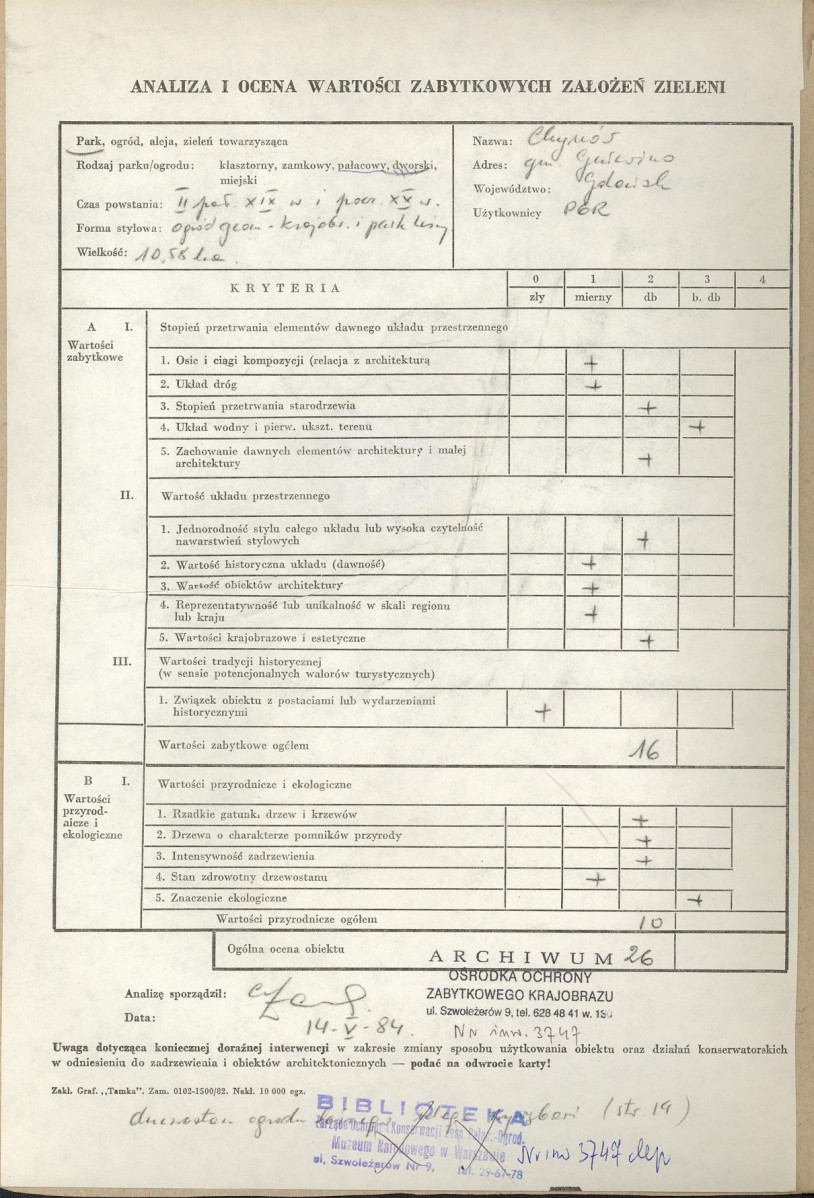 ANALIZA I OCENA WARTOŚCI ZABYTKOWYCH ZAŁOŻEŃ ZIELENI
Park, ogród, aleja, zieleń towarzysząca
Rodzaj parku/ogrodu: klasztorny, zamkowy, pałacowy, dworski,
miejski
Czas powstania: II poł. XIX w i pocz. XX w.
Forma stylowa: ogród geom - krajobr. i park leśny
Wielkość: 10,58 ha.
Nazwa:
Adres: gm. Gniewino
Województwo: Gdańsk
Użytkownicy PGR
KRYTERIA
0 1 2 3 4
zły mierny db b. db
A I. Stopień przetrwania elementów dawnego układu przestrzennego
Wartości
zabytkowe
1. Osie i ciągi kompozycji (relacja z architekturą +
2. Układ dróg +
3. Stopień przetrwania starodrzewia +
4. Układ wodny i pierw. ukszt. terenu +
5. Zachowanie dawnych elementów architektury i małej
architektury +
II. Wartość układu przestrzennego
1. Jednorodność stylu całego układu lub wysoka czytelność
nawarstwień stylowych +
2. Wartość historyczna układu (dawność) +
3. Wartość obiektów architektury +
4. Reprezentatywność lub unikalność w skali regionu
lub kraju +
5. Wartości krajobrazowe i estetyczne +
III. Wartości tradycji historycznej
(w sensie potencjonalnych walorów turystycznych)
1. Związek obiektu z postaciami lub wydarzeniami
historycznymi +
Wartości zabytkowe ogółem 16
B I. Wartości przyrodnicze i ekologiczne
Wartości
przyrod-
nicze i
ekologiczne
1. Rzadkie gatunki drzew i krzewów +
2. Drzewa o charakterze pomników przyrody +
3. Intensywność zadrzewienia +
4. Stan zdrowotny drzewostanu +
5. Znaczenie ekologiczne +
Wartości przyrodnicze ogółem 10
Ogólna ocena obiektu 26
ARCHIWUM
OŚRODKA OCHRONY
ZABYTKOWEGO KRAJOBRAZU
ul. Szwoleżerów 9, tel. 628 48 41 w.
Nr inw. 3747
Analizę sporządził:
Data: 14-V-84.
Uwaga dotycząca koniecznej doraźnej interwencji w zakresie zmiany sposobu użytkowania obiektu oraz działań konserwatorskich
w odniesieniu do zadrzewienia i obiektów architektonicznych — podać na odwrocie karty!
Zakł. Graf. „Tamka". Zam. 0102-1500/82. Nakł. 10 000 egz.
ogrodu (str. 19)
BIBLIOTEKA
Zarząd Ochrony i Konserwacji Zesp. Pałac.-Ogrod.
Muzeum Narodowego w Warszawie
ul. Szwoleżerów Nr 9, tel. 29-67-78
Nr inw 3747 dep